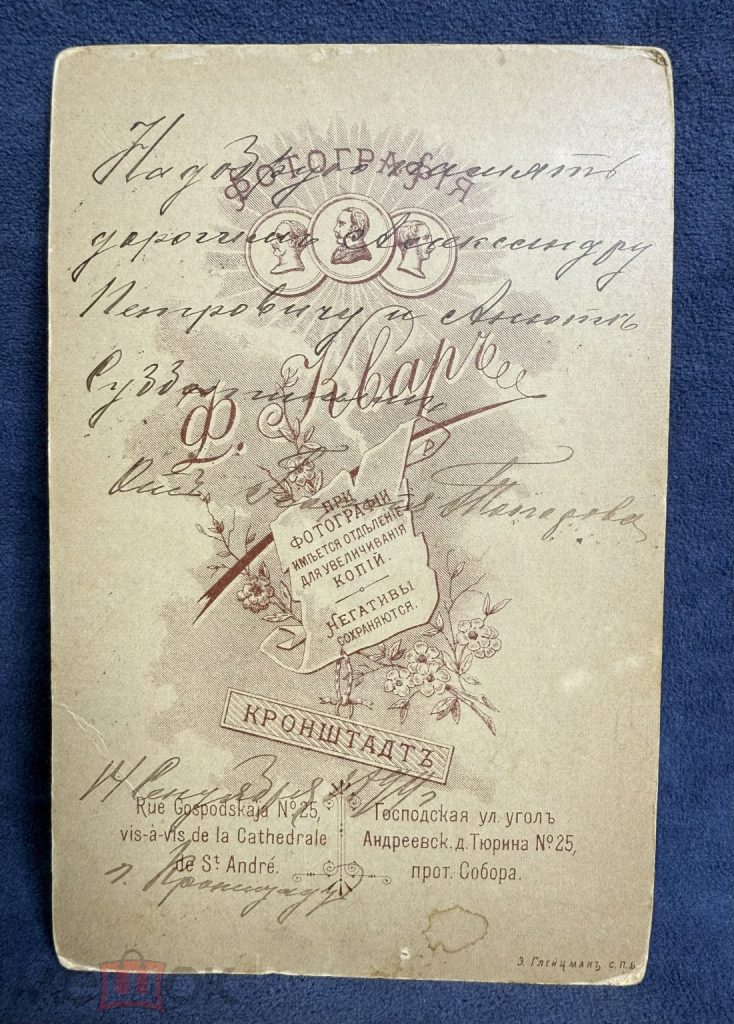 На добрую память
ФОТОГРАФІЯ
дорогимъ Александру
Петровичу и Анютѣ
Ф. Кваръ
Отъ
ПРИ
ФОТОГРАФІИ
ИМѢЕТСЯ ОТДѢЛЕНІЕ
ДЛЯ УВЕЛИЧИВАНІЯ
КОПІЙ.
НЕГАТИВЫ
СОХРАНЯЮТСЯ.
КРОНШТАДТЪ
14 Сентября
Rue Gospodskaja No. 25,
vis-à-vis de la Cathedrale
de St. André.
Господская ул. уголъ
Андреевск. д. Тюрина No. 25,
прот. Собора.
г. Кронштадтъ
Э. Глейцманъ, С.П.Б.